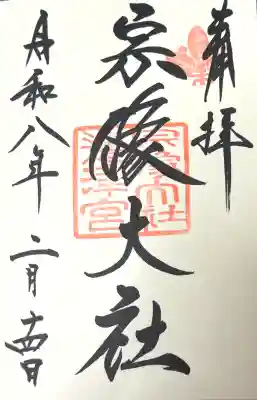 奉拝
宗像大社
令和八年 二月十四日
宗像大社
邊津宮